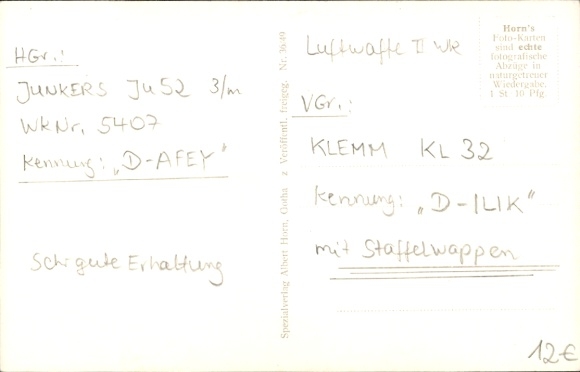 HGr.:
JUNKERS Ju52 3/m
WkNr. 5407
Kennung: „D-AFEY"
Sehr gute Erhaltung
Spezialverlag Albert Horn, Gotha z Veröffentl. freigeg. Nr. 3640
Luftwaffe II Wk
VGr.:
KLEMM KL 32
Kennung: „D-ILIK"
mit Staffelwappen
Horn's
Foto-Karten
sind echte
fotografische
Abzüge in
naturgetreuer
Wiedergabe.
1 St. 16 Pfg
12€